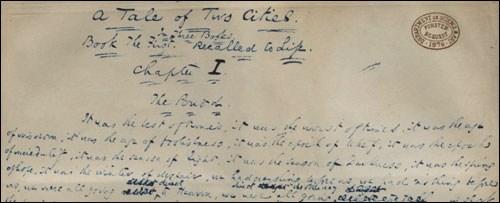 A Tale of Two Cities.
In Three Books.
Book The First. Recalled to Life.
Chapter I.
The
It was the best of times, it was the worst of times, it was the age
of wisdom, it was the age of foolishness, it was the epoch of belief, it was the epoch
of incredulity, it was the season of Light, it was the season of Darkness, it was the spring
of hope, it was the winter of despair, we had everything before us, we had nothing before
us, we were all going direct to Heaven, we were all going direct the other way
DEPARTMENT OF SCIENCE & ART
FORSTER
BEQUEST
1876